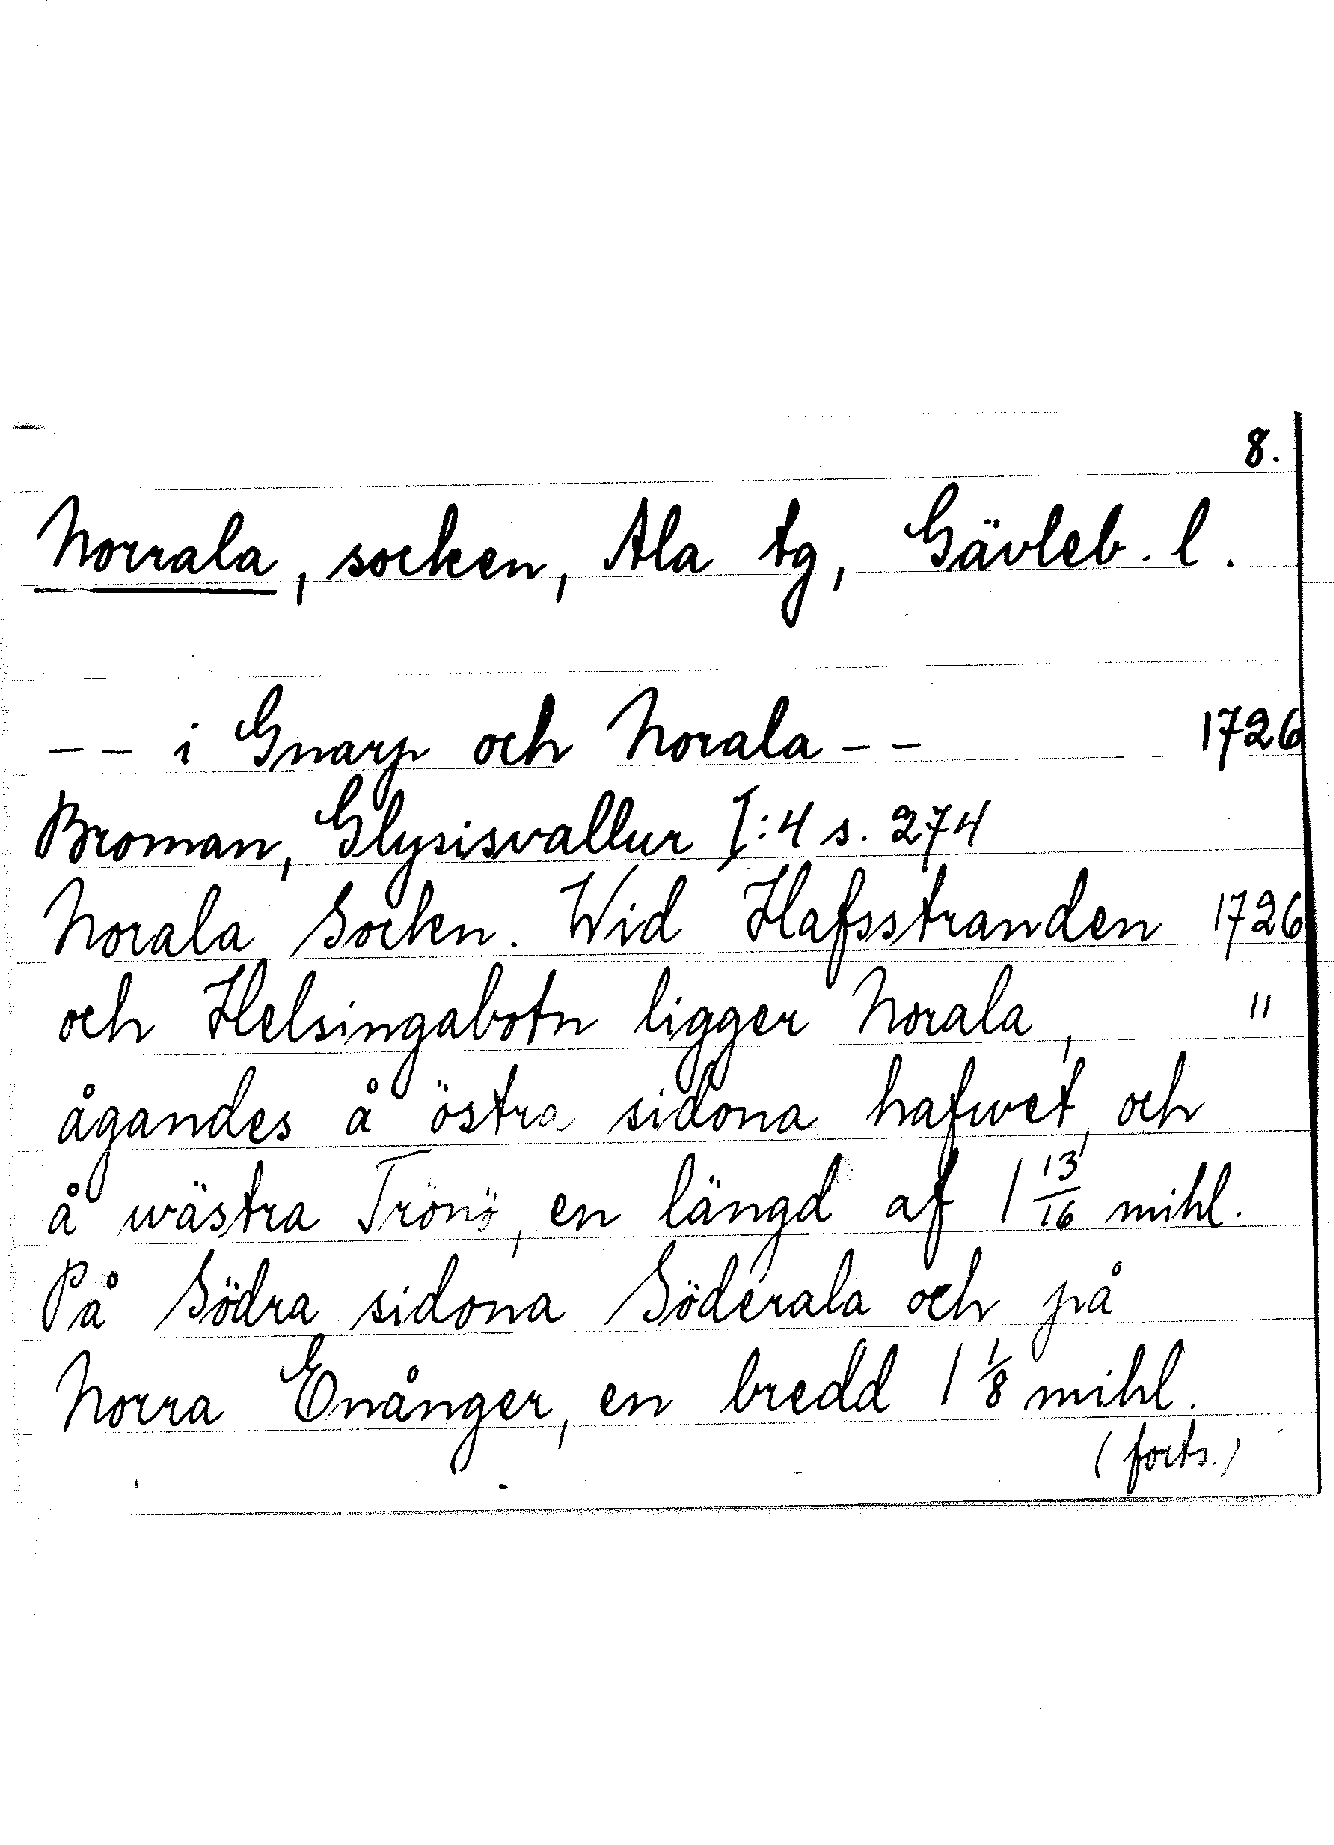 8.
Norrala, socken, Ala tg, Gävleb. l.
-- i Gnarp och Norala -- 1726
Broman, Glysisvallur I:4 s. 274
Norala Socken. Wid Hafsstranden 1726
och Helsingabotn ligger Norala, "
ågandes å östra sidona hafwet, och
å wästra Trönö, en längd af 1 13/16 mihl.
På Södra sidona Söderala och på
Norra Enånger, en bredd 1 1/8 mihl.
(forts.)